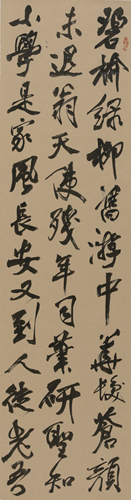 碧榆綠柳舊游中華髮蒼顏
未退翁天使殘年司筆研聖知
小學是家風長安又到人徒老吾